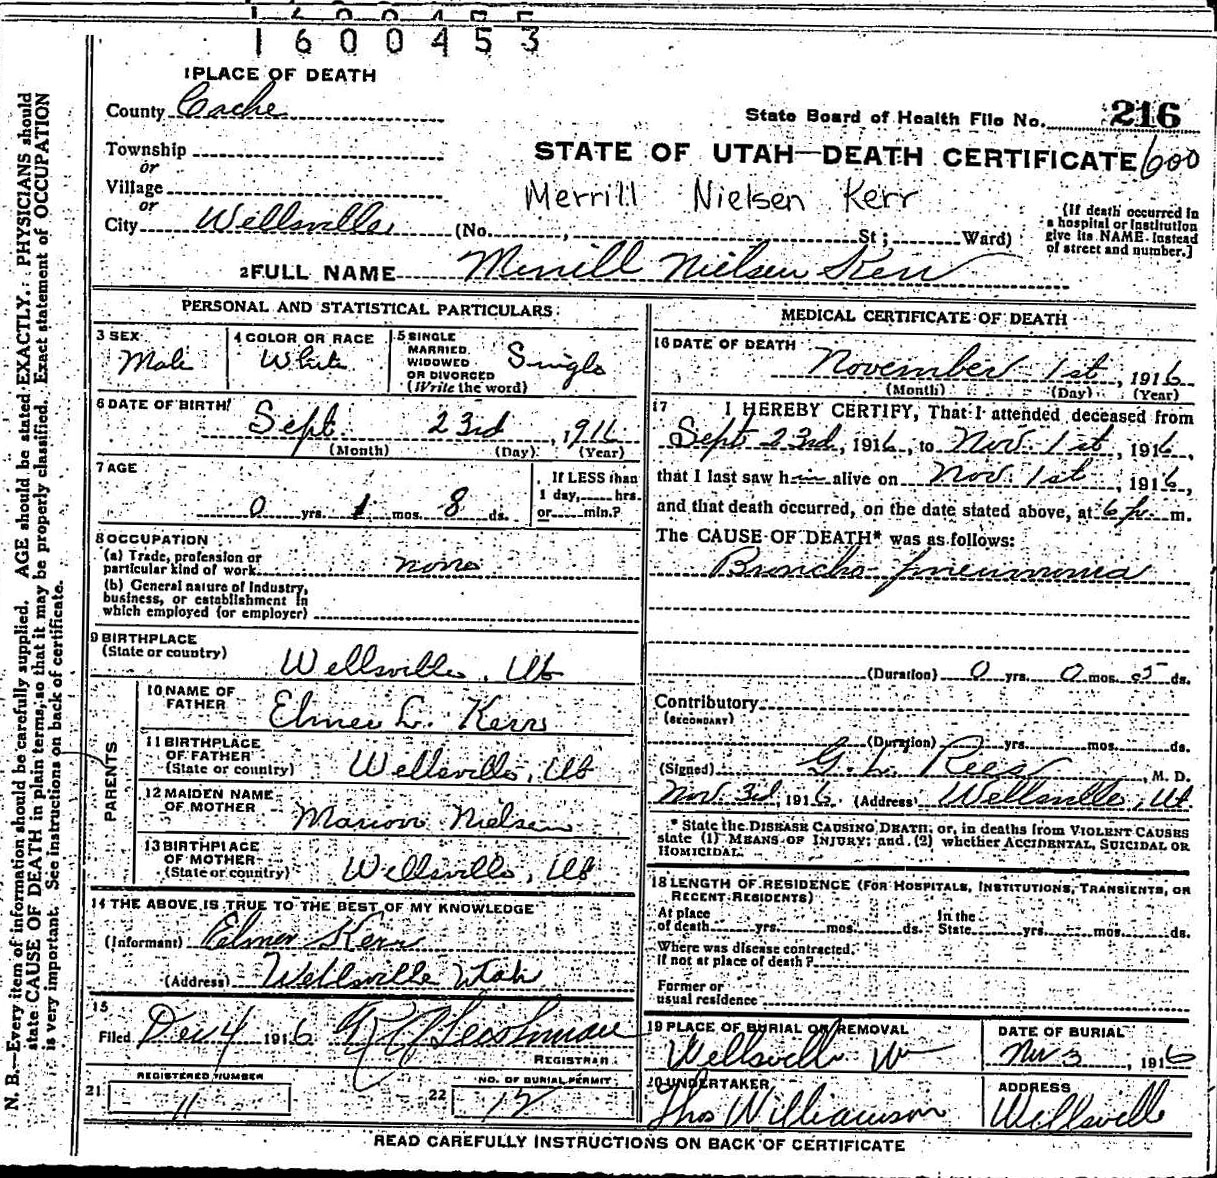 1600453
1 PLACE OF DEATH
County Cache
State Board of Health File No. 216
Township
or
STATE OF UTAH—DEATH CERTIFICATE 600
Village
or
Merrill Nielsen Kerr
City Wellsville (No. , St ; Ward)
[If death occurred in
a hospital or institution
give its NAME instead
of street and number.]
2 FULL NAME Merrill Nielsen Kerr
PERSONAL AND STATISTICAL PARTICULARS
3 SEX
Male
4 COLOR OR RACE
White
5 SINGLE
MARRIED
WIDOWED
OR DIVORCED
(Write the word)
Single
6 DATE OF BIRTH
Sept. 23rd, 1916
(Month) (Day) (Year)
7 AGE
0 yrs. 1 mos. 8 ds.
If LESS than
1 day, hrs.
or min.?
8 OCCUPATION
(a) Trade, profession or
particular kind of work none
(b) General nature of Industry,
business, or establishment in
which employed (or employer)
9 BIRTHPLACE
(State or country)
Wellsville, Ut
PARENTS
10 NAME OF
FATHER
Elmer L. Kerr
11 BIRTHPLACE
OF FATHER
(State or country) Wellsville, Ut
12 MAIDEN NAME
OF MOTHER
Marion Nielsen
13 BIRTHPLACE
OF MOTHER
(State or country) Wellsville, Ut
14 THE ABOVE IS TRUE TO THE BEST OF MY KNOWLEDGE
(Informant) Elmer Kerr
(Address) Wellsville Utah
15
Filed Dec 4 1916
REGISTRAR
21 REGISTERED NUMBER
11
22 NO. OF BURIAL PERMIT
12
MEDICAL CERTIFICATE OF DEATH
16 DATE OF DEATH
November 1st, 1916
(Month) (Day) (Year)
17 I HEREBY CERTIFY, That I attended deceased from
Sept 23rd, 1916, to Nov. 1st, 1916,
that I last saw h alive on Nov. 1st, 1916,
and that death occurred, on the date stated above, at 6 p. m.
The CAUSE OF DEATH* was as follows:
Broncho-pneumonia
(Duration) 0 yrs. 0 mos. 5 ds.
Contributory
(SECONDARY)
(Duration) yrs. mos. ds.
(Signed) G. L. Rees, M. D.
Nov. 3rd, 1916. (Address) Wellsville, Ut
* State the DISEASE CAUSING DEATH; or, in deaths from VIOLENT CAUSES
state (1) MEANS OF INJURY; and (2) whether ACCIDENTAL, SUICIDAL OR
HOMICIDAL.
18 LENGTH OF RESIDENCE (FOR HOSPITALS, INSTITUTIONS, TRANSIENTS, OR
RECENT RESIDENTS)
At place
of death yrs. mos. ds.
In the
State yrs. mos. ds.
Where was disease contracted,
if not at place of death?
Former or
usual residence
19 PLACE OF BURIAL OR REMOVAL
Wellsville
DATE OF BURIAL
Nov 3, 1916
20 UNDERTAKER
Thos Williamson
ADDRESS
Wellsville
READ CAREFULLY INSTRUCTIONS ON BACK OF CERTIFICATE
N. B.—Every item of information should be carefully supplied. AGE should be stated EXACTLY. PHYSICIANS should
state CAUSE OF DEATH in plain terms, so that it may be properly classified. Exact statement of OCCUPATION
is very important. See instructions on back of certificate.